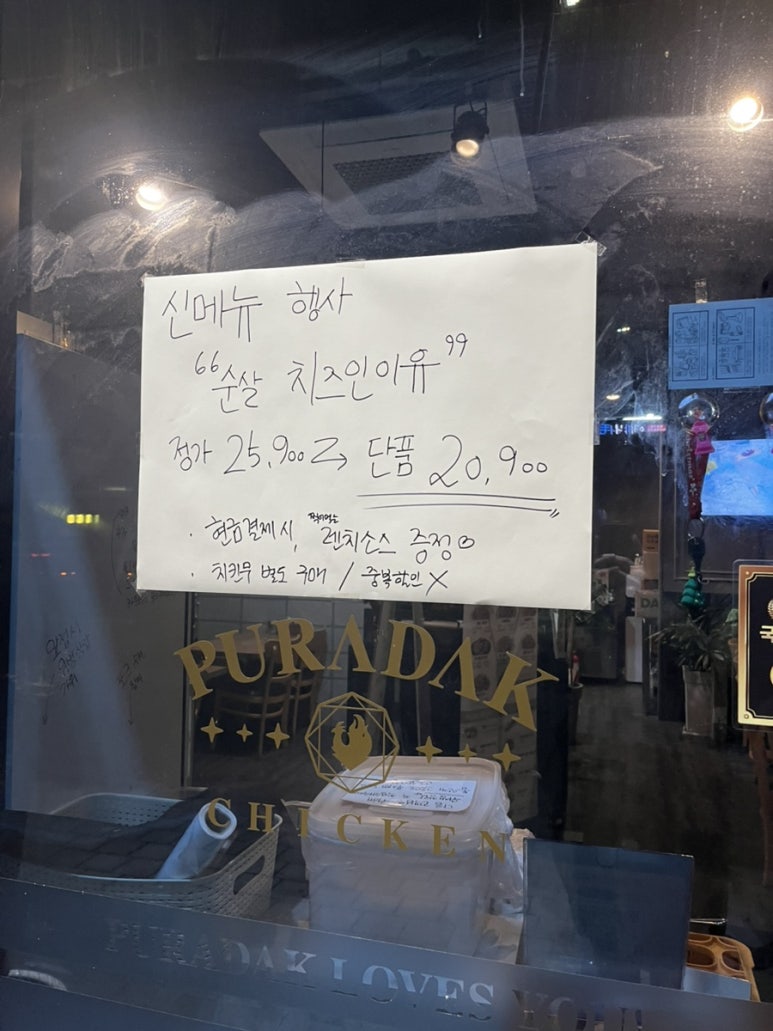 신메뉴 행사
“순살 치즈인이유”
정가 25,900 → 단품 20,900
· 현금결제시, 렌치소스 증정○
· 치킨무 별도 구매 / 중복할인 X
PURADAK
CHICKEN
PURADAK LOVES YOU